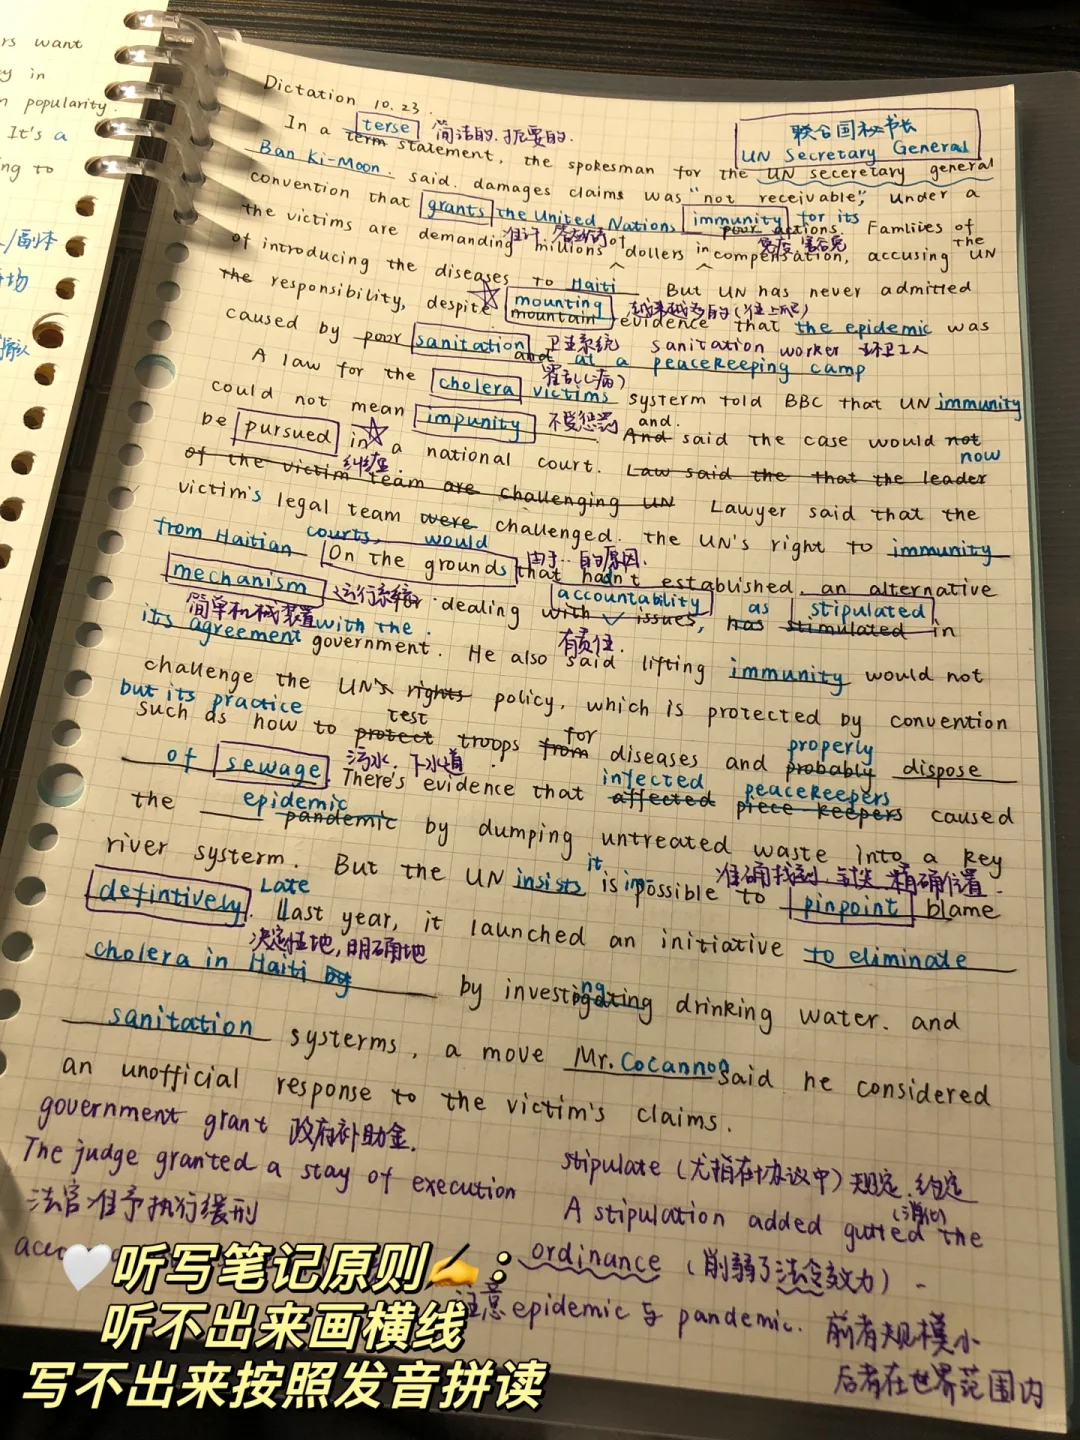 rs want
y in
n popularity.
It's a
ing to
/副本
Dictation 10.23.
联合国秘书长
UN Secretary General
terse 简洁的.扼要的.
In a term statement, the spokesman for the UN seceretary general
Ban Ki-Moon. said. damages claims was "not receivable", under a
convention that grants the United Nations immunity for its
poor actions. Famlies of
准许 免疫,豁免
the victims are demanding millions of dollers in compensation, accusing the UN
of introducing the diseases to Haiti. But UN has never admitted
the responsibility, despite mounting 越来越多的(往上爬)
mountain evidence that the epidemic was
caused by poor sanitation 卫生系统 sanitation worker 环卫工人
and at a peacekeeping camp
霍乱(病)
A law for the cholera victims systerm told BBC that UN immunity
could not mean impunity 不受惩罚 and. And said the case would not
now
be pursued in a national court. Law said the that the leader
纠缠.
of the victim team are challenging UN Lawyer said that the
victim's legal team were challenged. the UN's right to immunity
from Haitian courts, would
On the grounds 由于…的原因. that hadn't established. an alternative
mechanism 运行系统 dealing with issues, has stimulated in
accountability as stipulated
简单机械装置 with the.
有责任.
its agreement government. He also said lifting immunity would not
challenge the UN's rights policy, which is protected by convention
but its practice
such as how to protect troops from diseases and probably dispose
test for properly
of sewage. 污水, 下水道.
There's evidence that affected piece keepers caused
infected peacekeepers
the epidemic pandemic by dumping untreated waste into a key
river systerm. But the UN insists it is impossible to pinpoint blame
defintively. Late Last year, it launched an initiative to eliminate
决定性地,明确地
cholera in Haiti by by investigating drinking water. and
ng
sanitation systerms, a move Mr. Cocannon said he considered
an unofficial response to the victim's claims.
government grant 政府补助金.
The judge granted a stay of execution
法官准予执行缓刑
stipulate (尤指在协议中) 规定.约定
A stipulation added gutted the
ordinance (削弱了法令效力)
注意 epidemic 与 pandemic. 前者规模小
后者在世界范围内
🤍听写笔记原则✍️：
听不出来画横线
写不出来按照发音拼读